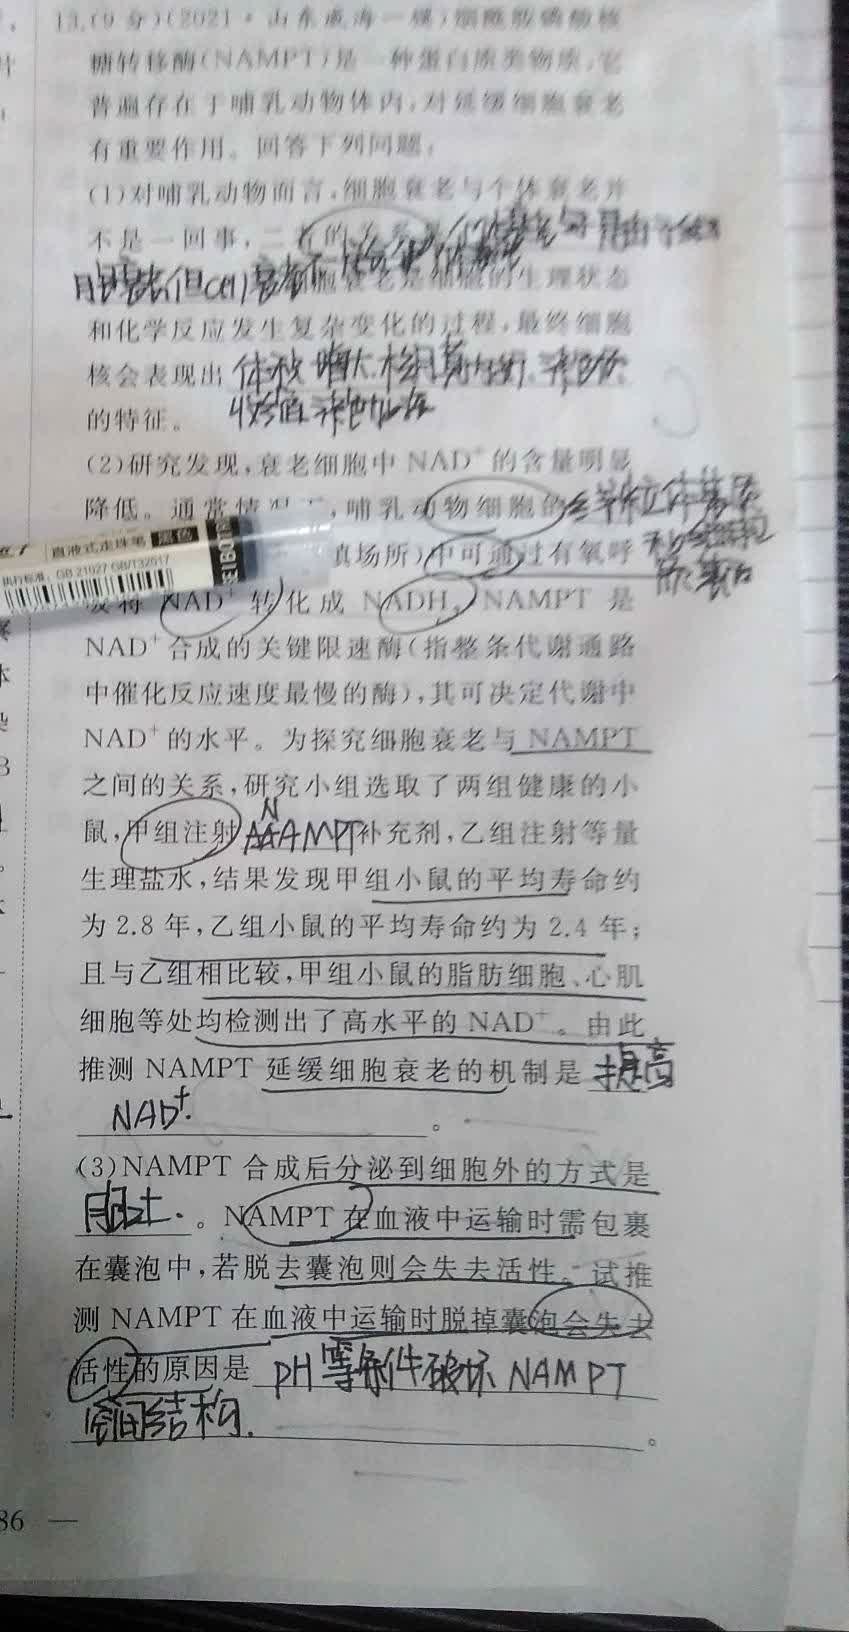 13.(9分)(2021·山东威海一模)烟酰胺磷酸核
糖转移酶(NAMPT)是一种蛋白质类物质,它
普遍存在于哺乳动物体内,对延缓细胞衰老
有重要作用。回答下列问题:
(1)对哺乳动物而言,细胞衰老与个体衰老并
不是一回事,二者的关系是
胞衰老但cell衰老不
细胞衰老是细胞的生理状态
和化学反应发生复杂变化的过程,最终细胞
核会表现出 体积增大.核膜内折.染色质
的特征。 收缩 染色加深
(2)研究发现,衰老细胞中 NAD⁺的含量明显
降低。通常情况下,哺乳动物细胞的 线粒体基质
填场所)中可通过有氧呼
直液式走珠笔 黑色
执行标准: GB 21027 GB/T32017
吸将 NAD⁺ 转化成 NADH。NAMPT 是
NAD⁺合成的关键限速酶(指整条代谢通路
中催化反应速度最慢的酶),其可决定代谢中
NAD⁺的水平。为探究细胞衰老与 NAMPT
之间的关系,研究小组选取了两组健康的小
鼠,甲组注射 NAMPT补充剂,乙组注射等量
生理盐水,结果发现甲组小鼠的平均寿命约
为 2.8 年,乙组小鼠的平均寿命约为 2.4 年;
且与乙组相比较,甲组小鼠的脂肪细胞、心肌
细胞等处均检测出了高水平的 NAD⁺。由此
推测 NAMPT 延缓细胞衰老的机制是 提高
NAD⁺. 。
(3)NAMPT 合成后分泌到细胞外的方式是
胞吐. 。NAMPT 在血液中运输时需包裹
在囊泡中,若脱去囊泡则会失去活性。试推
测 NAMPT 在血液中运输时脱掉囊泡会失去
活性的原因是 PH等条件破坏 NAMPT
空间结构. 。
86 —